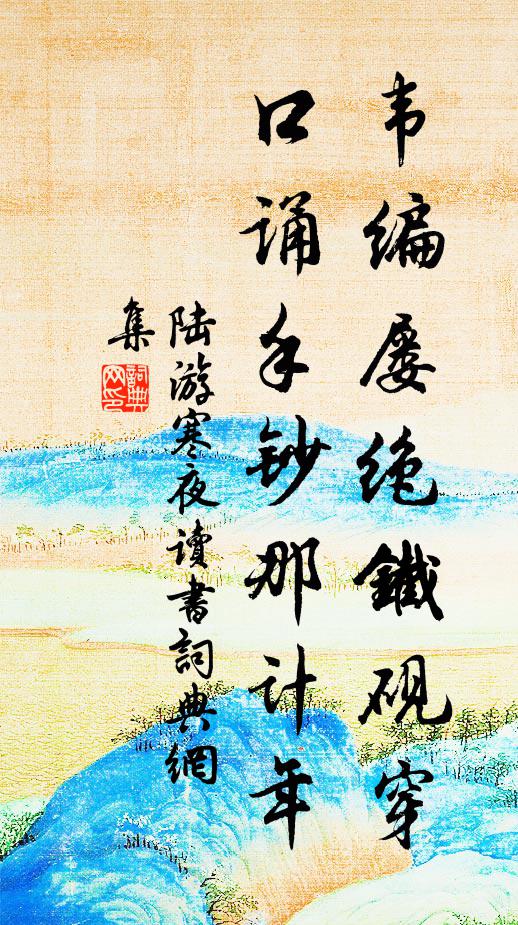 韦编屡绝鐵砚穿
口诵手钞那计年
陆游寒夜读书詞典網
集
詞典
网印